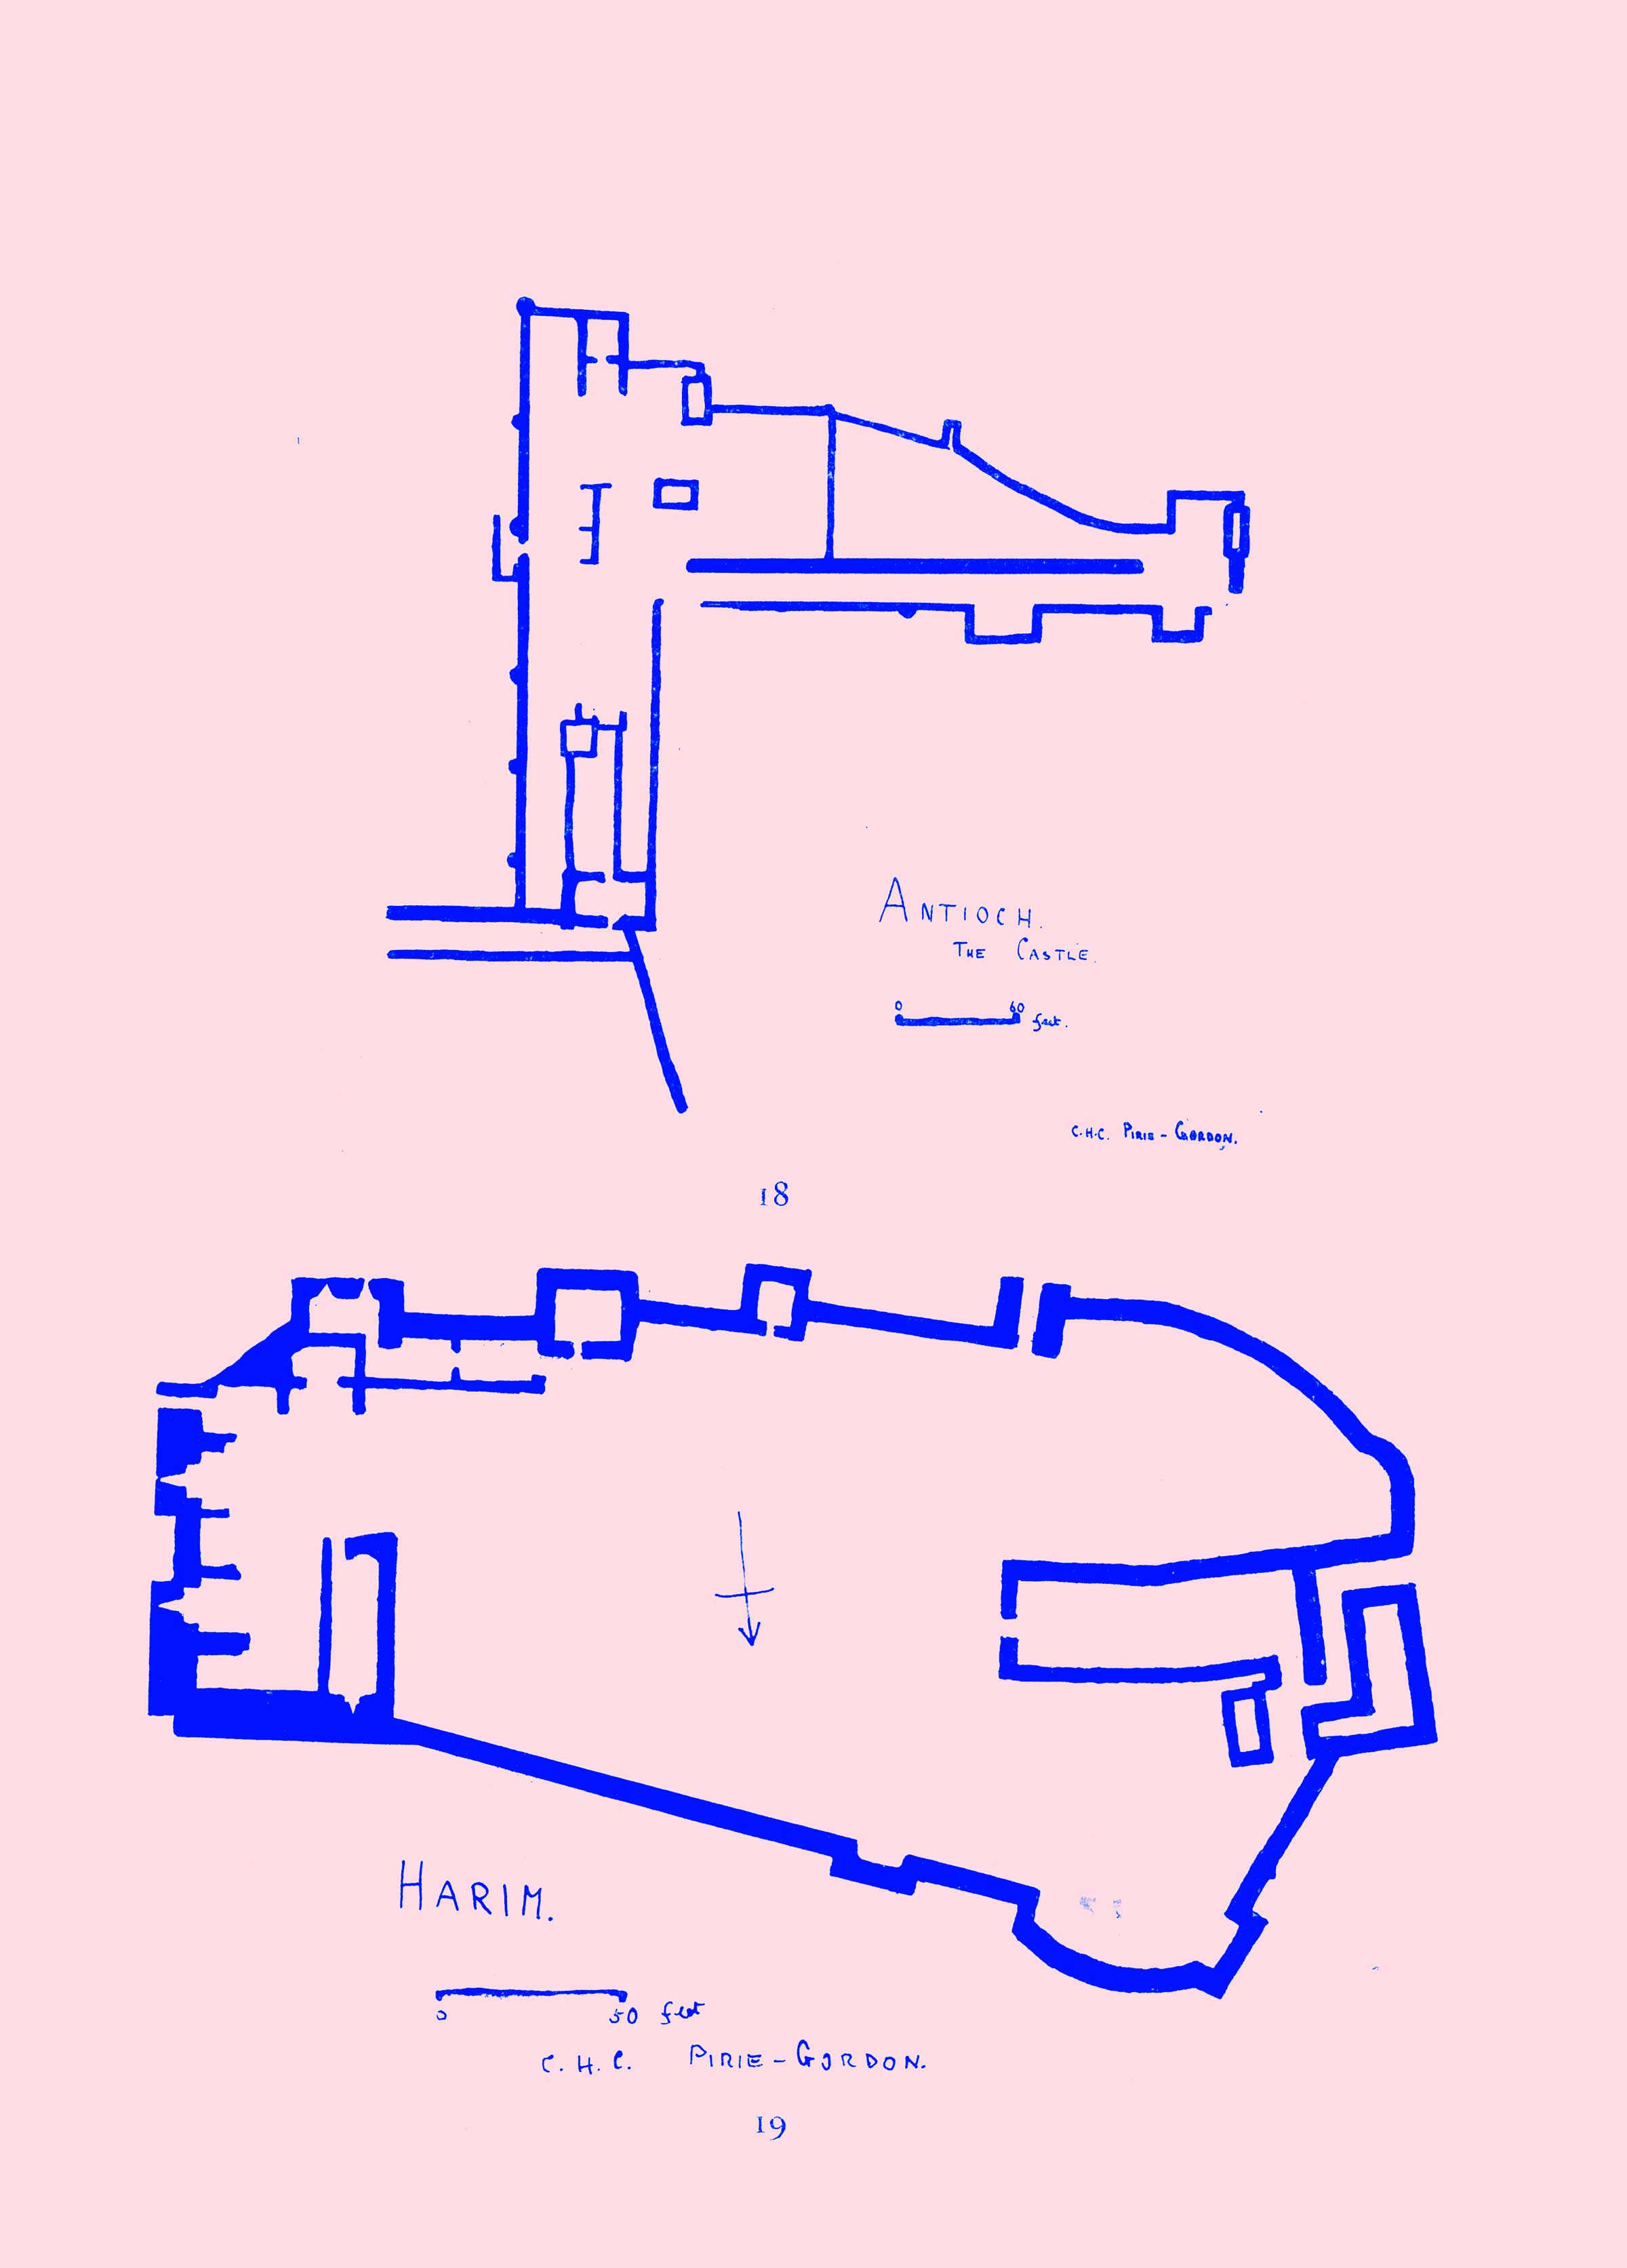 ANTIOCH.
THE CASTLE.
0 60 feet.
C.H.C. PIRIE-GORDON.
18
HARIM.
0 50 feet
C. H. C. PIRIE-GORDON.
19